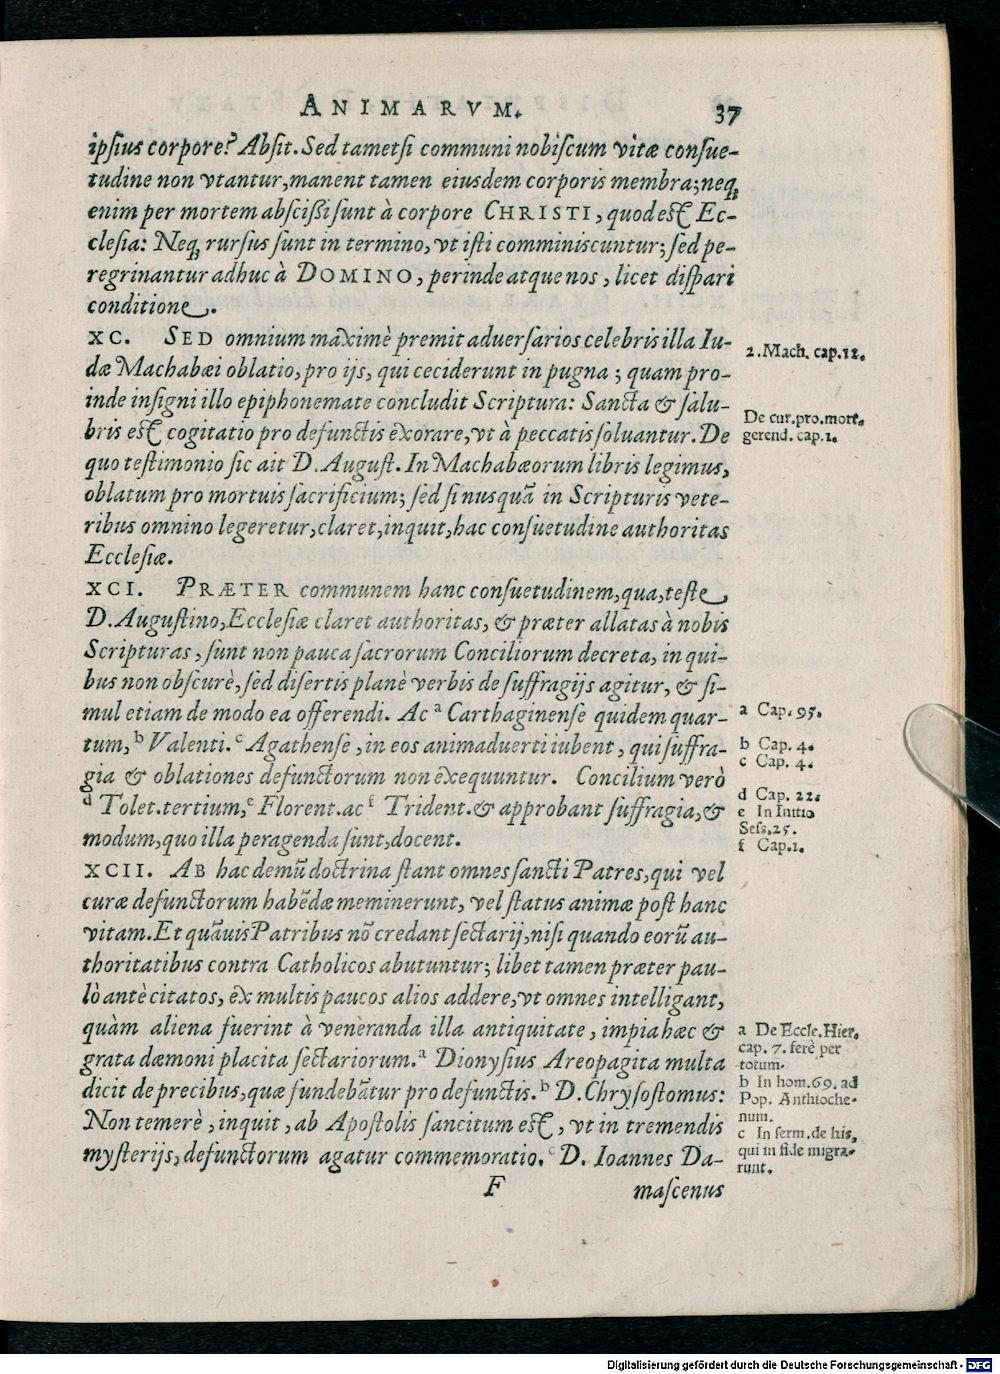 ANIMARVM. 37
ipsius corpore? Absit. Sed tametsi communi nobiscum vitæ consue-
tudine non vtantur, manent tamen eiusdem corporis membra; neq;
enim per mortem abscißi sunt à corpore CHRISTI, quod est Ec-
clesia: Neq; rursus sunt in termino, vt isti comminiscuntur; sed pe-
regrinantur adhuc à DOMINO, perinde atque nos, licet dispari
conditione.
XC. SED omnium maximè premit aduersarios celebris illa Iu-
dæ Machabæi oblatio, pro ijs, qui ceciderunt in pugna; quam pro-
inde insigni illo epiphonemate concludit Scriptura: Sancta & salu-
bris est cogitatio pro defunctis exorare, vt à peccatis soluantur. De
quo testimonio sic ait D. August. In Machabæorum libris legimus,
oblatum pro mortuis sacrificium; sed si nusquã in Scripturis vete-
ribus omnino legeretur, claret, inquit, hac consuetudine authoritas
Ecclesiæ.
2. Mach. cap. 12.
De cur. pro. mort.
gerend. cap. 1.
XCI. PRÆTER communem hanc consuetudinem, qua, teste
D. Augustino, Ecclesiæ claret authoritas, & præter allatas à nobis
Scripturas, sunt non pauca sacrorum Conciliorum decreta, in qui-
bus non obscurè, sed disertis planè verbis de suffragijs agitur, & si-
mul etiam de modo ea offerendi. Ac a Carthaginense quidem quar-
tum, b Valenti. c Agathense, in eos animaduerti iubent, qui suffra-
gia & oblationes defunctorum non exequuntur. Concilium verò
d Tolet. tertium, e Florent. ac f Trident. & approbant suffragia, &
modum, quo illa peragenda sunt, docent.
a Cap. 95.
b Cap. 4.
c Cap. 4.
d Cap. 22.
e In Initio
Sess. 25.
f Cap. 1.
XCII. AB hac demũ doctrina stant omnes sancti Patres, qui vel
curæ defunctorum habẽdæ meminerunt, vel status animæ post hanc
vitam. Et quãuis Patribus nõ credant sectarij, nisi quando eorũ au-
thoritatibus contra Catholicos abutuntur; libet tamen præter pau-
lò antè citatos, ex multis paucos alios addere, vt omnes intelligant,
quàm aliena fuerint à veneranda illa antiquitate, impia hæc &
grata dæmoni placita sectariorum. a Dionysius Areopagita multa
dicit de precibus, quæ fundebãtur pro defunctis. b D. Chrysostomus:
Non temerè, inquit, ab Apostolis sancitum est, vt in tremendis
mysterijs, defunctorum agatur commemoratio. c D. Ioannes Da-
a De Eccle. Hier.
cap. 7. ferè per
totum.
b In hom. 69. ad
Pop. Anthioche-
num.
c In serm. de his,
qui in fide migra-
runt.
F mascenus
Digitalisierung gefördert durch die Deutsche Forschungsgemeinschaft - DFG